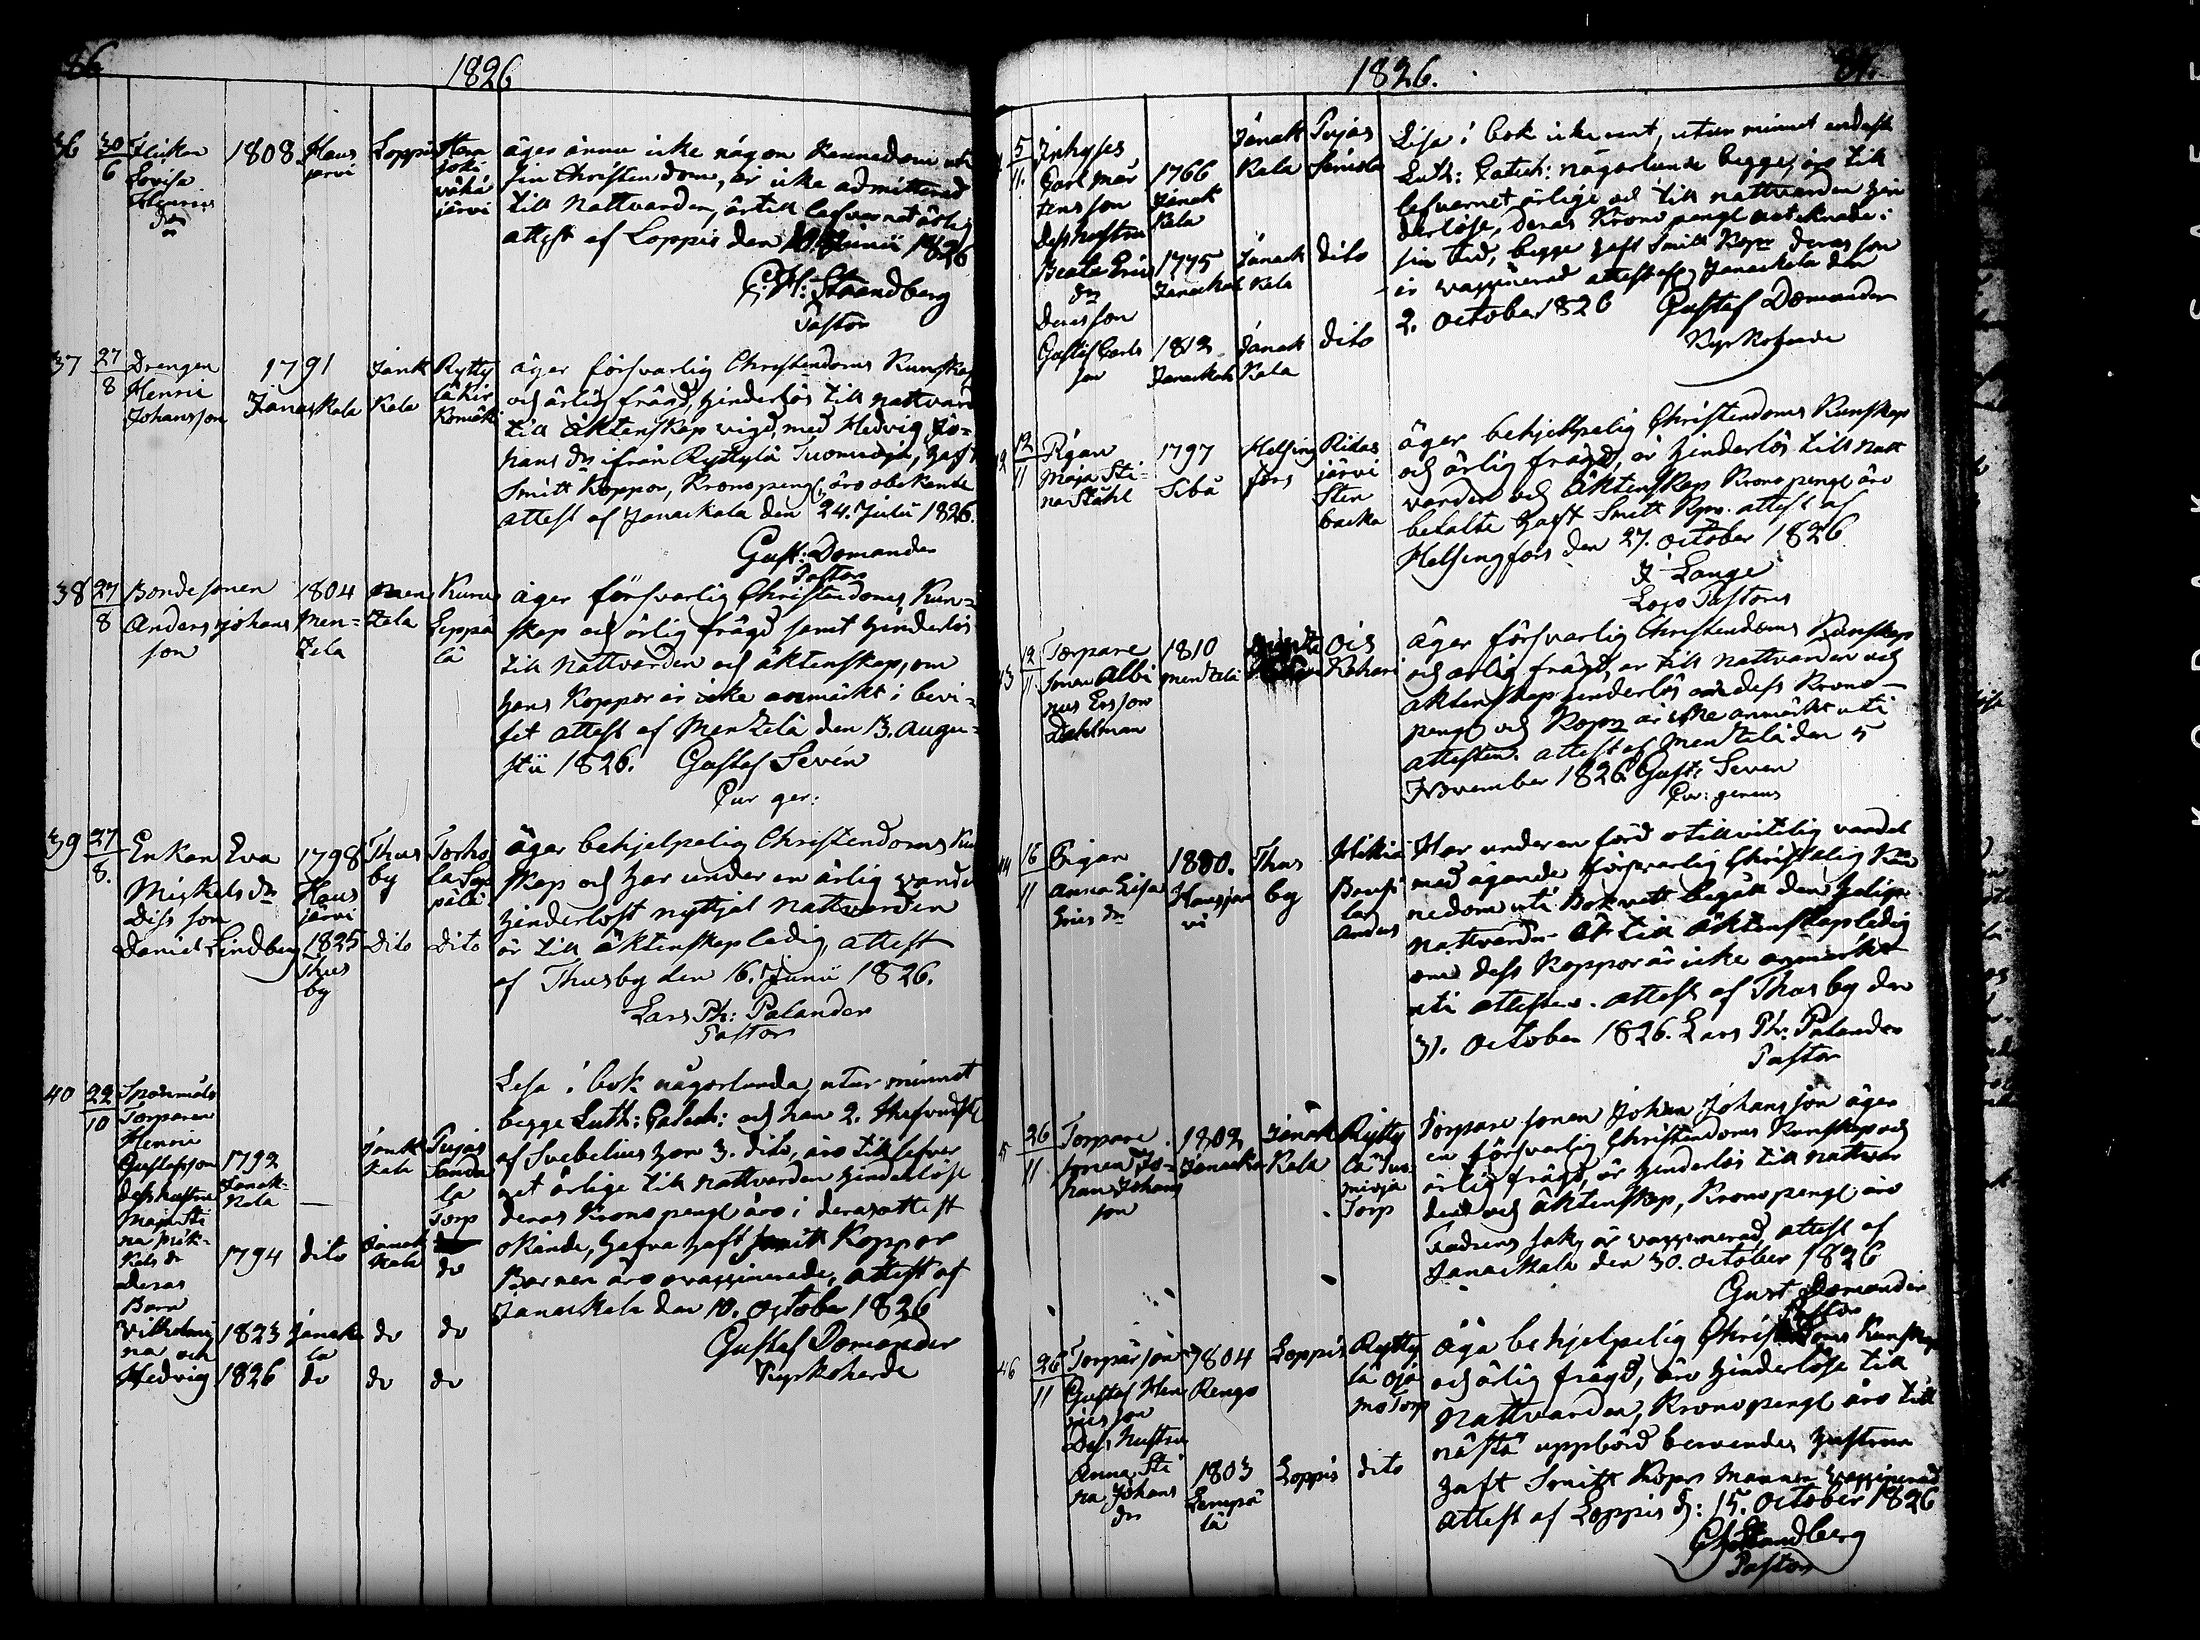 86
1826
36 30/6 Flickan Lovisa Henrics dr 1808 Haus jervi Loppis Hera joki vähä järvi
äger ännu icke någon kannedom uti
sin Christendom, är icke admitterad
till Nattvarden, är till lefvernet ärlig
attest af Loppis den Junii 1826
Strandberg
Pastor
37 27/8 Drengen Henric Johansson 1791 Janakkala Janakkala Rytty lä Kir Komäki
äger försvarlig Christendoms Kunskap
och ärlig frägd, hinderlös till nattvard
till äktenskap vigd, med Hedvig Jo-
hans dr ifrån Ryttylä Tuomioja, haft
Smitt Koppor, Kronopengr äro obekante
attest af Janackala den 24. Julii 1826.
Gust: Domander
Pastor
38 27/8 Bondesonen Anders Johansson 1804 Men=zela Men zela Kurus Leppä lä
äger försvarlig Christendoms Kun=
skap och ärlig frägd samt hinderlös
till Nattvarden och äktenskap, om
hans Koppor är icke anmärkt i bevi-
set attest af Menzelä den 13. Augu-
stii 1826. Gustaf Sevén
Cur ger:
39 27/8. Enkan Eva Mickels dr 1798 Haus järvi Thus by
Dess son Daniel Lindberg 1825 Thus by Dito Dito
äger behjelpelig Christendoms Kun
skap och har under en ärlig vandel
hinderlöst nyttjat Nattvarden
är till äktenskap ledig, attest
af Thusby den 16. Junii 1826.
Lars Th: Palander
Pastor
40 22/10 Spanmåls Torparen Henric Gustafsson 1792 Janak-Kala Janak Kala Pujas Sandu la Torp
dess hustru Maja Sti na Mik-kels dr 1794 dito Janak Kala do
Deras Barn
Vilhelmi na och 1823 Janakka la do do
Hedvig 1826 do do do
Lesa i bok någorlunda, utur minnet
begge Luth: Catech: och han 2. Hufvudst
af Svebelius hon 3. dito, äro till lefver
net ärlige till nattvarden hinderlöse
deras Kronopengr äro i deras attest
okände, hafva haft Smitt Koppor
Barnen äro ovaccinerade, attest af
Janackala den 10. October 1826
Gustaf Domander
Kyrkoherde
1826.
5/11. Inhyses Carl Mår tensson 1766 Janak Kala Janak Kala Pujas
Dess hustru Beata Erics dr 1775 Janackala Janack Kala dito
Deras son Gustaf Carls son 1812 Janackala Janak Kala dito
Lisa i bok icke rent, utur minnet endast
Luth: Catech: någorlunda begge, äro till
lefvernet ärlige och till nattvarden hin
derlöse, deras Kronopengr
sin tid, begge haft Smitt Kopr deras son
är vaccinerad attest af Janackala den
2. October 1826 Gustaf Domander
Kyrkoherde
12/11 Pigan Maja Sti-na Ståhl 1797 Sibå Helsing fors Ridas järvi Sten backa
äger behjelpelig Christendoms Kunskap
och ärlig frägd, är hinderlös till Natt
varden och Äktenskap Kronopengr äro
betalte haft Smitt Kopr. attest af
Helsingfors den 27. October 1826
J Lange
Loco Pastoris
12/11 Torpare sonen Albi nus Ersson Dahlman 1810 Mentzelä Ois
äger försvarlig Christendoms Kunskap
och ärlig frägd, är till nattvarden och
äktenskap hinderlös om dess Krono-
pengr och Kopor är icke anmärkt uti
attesten. attest af Mentzelä den 5
November 1826 Gust: Seven
Cur: gerens
44 16/11 Pigan Anna Lisa Erics dr 1800. Hausjär vi Thus by
Har under en förd otillvitelig vandel
med ägande försvarlig Christelig Kän
nedom uti Bok rätt begått den helige
nattvarden Är till äktenskap ledig
om dess Koppor är icke anmärkt
uti attesten. attest af Thusby den
31. October 1826. Lars Th: Palander
Pastor
5 26/11 Torpare sonen Jo-han Johans son 1802 Janacka Janak Kala Rytty lä Tuo mioja Torp
Torpare sonen Johan Johansson äger
en försvarlig Christendoms Kunskap och
ärlig frägd, är hinderlös till nattvar
den och Äktenskap, Kronopengr äro
Fadrens sak, är vaccinerad, attest af
Janackala den 30. October 1826
Gust Domander
Pastor
46 26/11 Torpar son Gustaf Hen ricsson 1804 Rengo Loppis Rytty lä oja mo Torp
Dess Hustru Anna Sti na Johans dr 1803 Lempä lä Loppis dito
äga behjelpelig Christendoms Kunskap
och ärlig frägd, äro hinderlöse till
Nattvarden, Kronopengr äro till
nästa uppbörd beroende, hustrun
haft Smitt Kopor Mannen vaccinerad
attest af Loppis d: 15. October 1826
Strandberg
Pastor